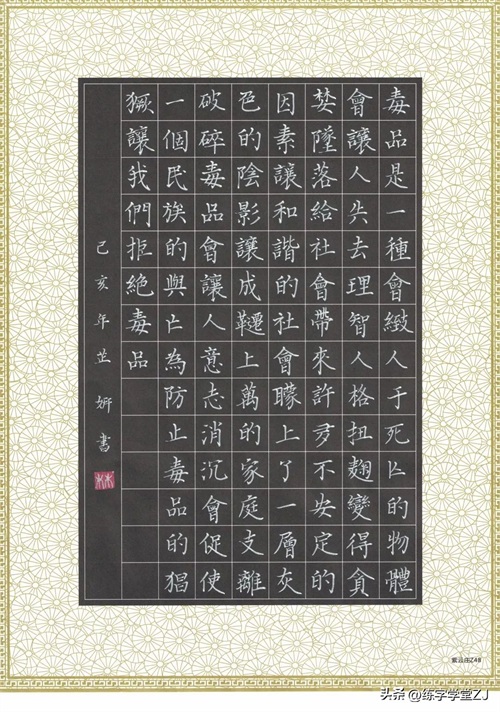 毒品是一種會緻人于死亾的物體
會讓人失去理智人格扭麯變得貪
婪墮落給社會帶來許多不安定的
因素讓和諧的社會矇上了一層灰
色的陰影讓成韆上萬的家庭支離
破碎毒品會讓人意志消沉會促使
一個民族的與亾為防止毒品的猖
獗讓我們拒絕毒品
己亥年芷妍書
头条@练字学堂ZJ